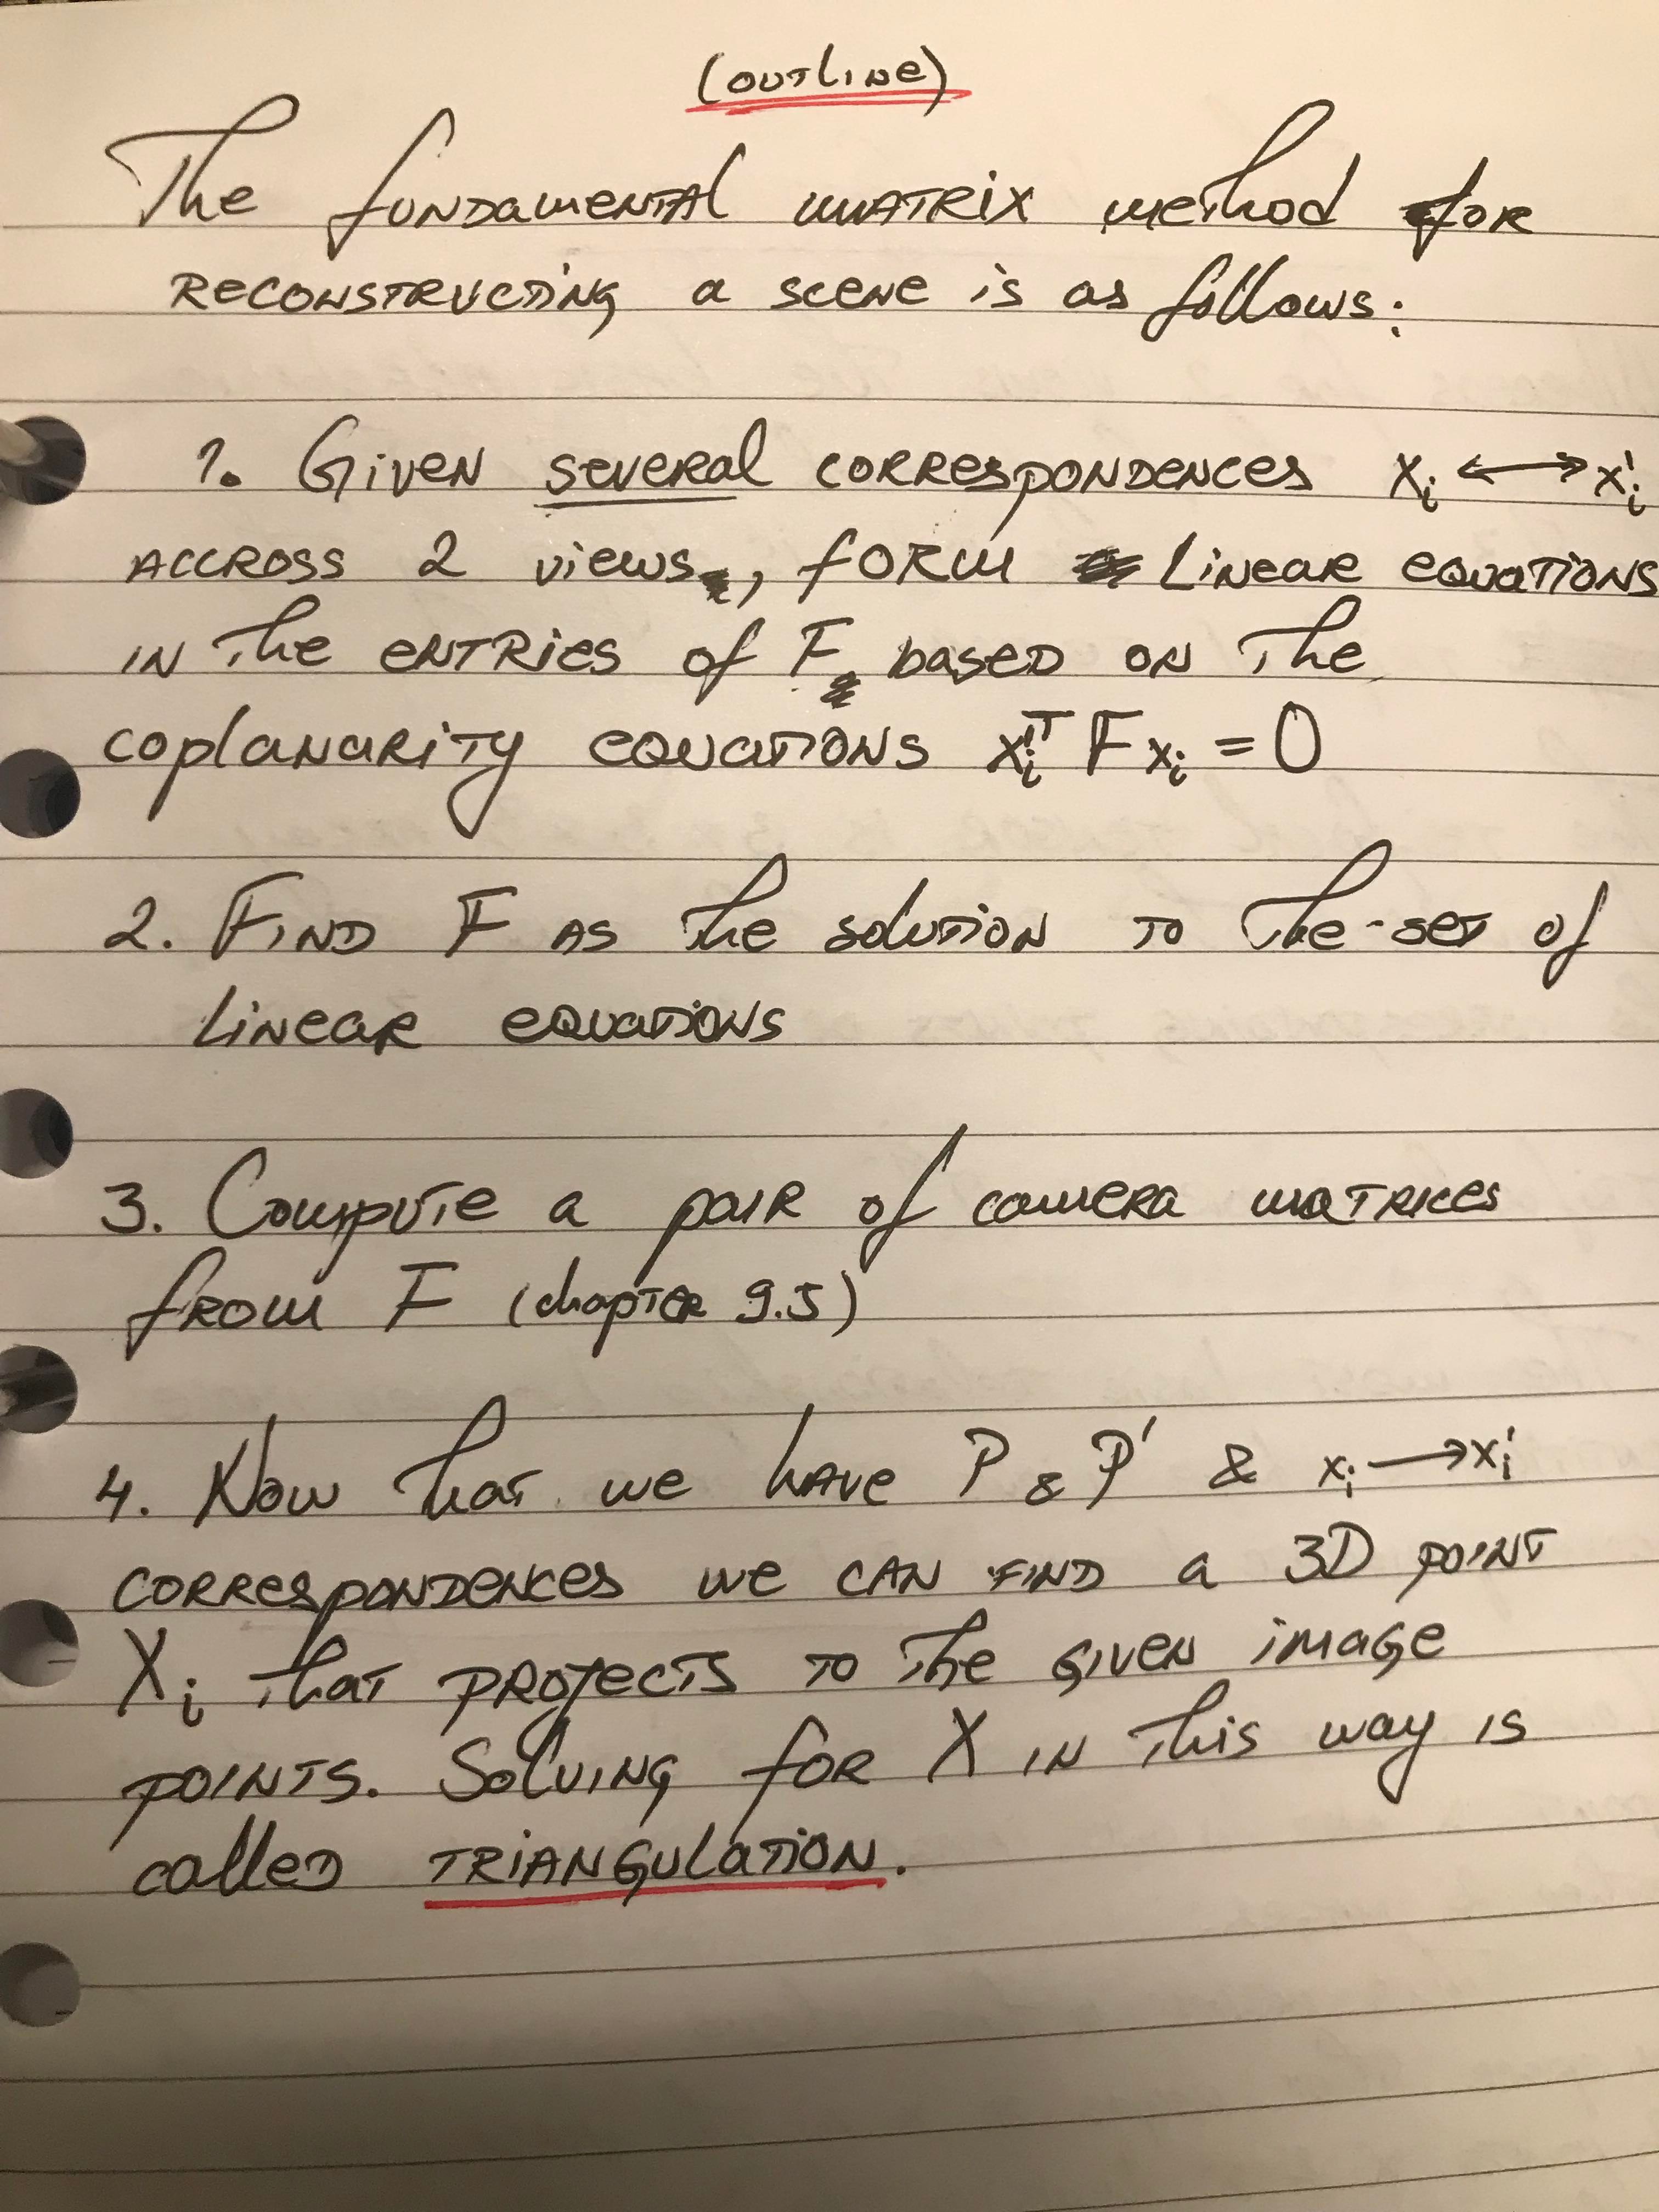 (outline)
The fundamental matrix method for
reconstructing a scene is as follows:
1. Given several correspondences xᵢ ⟷ x'ᵢ
accross 2 views, form linear equations
in the entries of F based on the
coplanarity equations x'ᵢᵀ F xᵢ = 0
2. Find F as the solution to the set of
linear equations
3. Compute a pair of camera matrices
from F (chapter 9.5)
4. Now that we have P & P' & xᵢ ⟶ xᵢ'
correspondences we can find a 3D point
Xᵢ that projects to the given image
points. Solving for X in this way is
called triangulation.